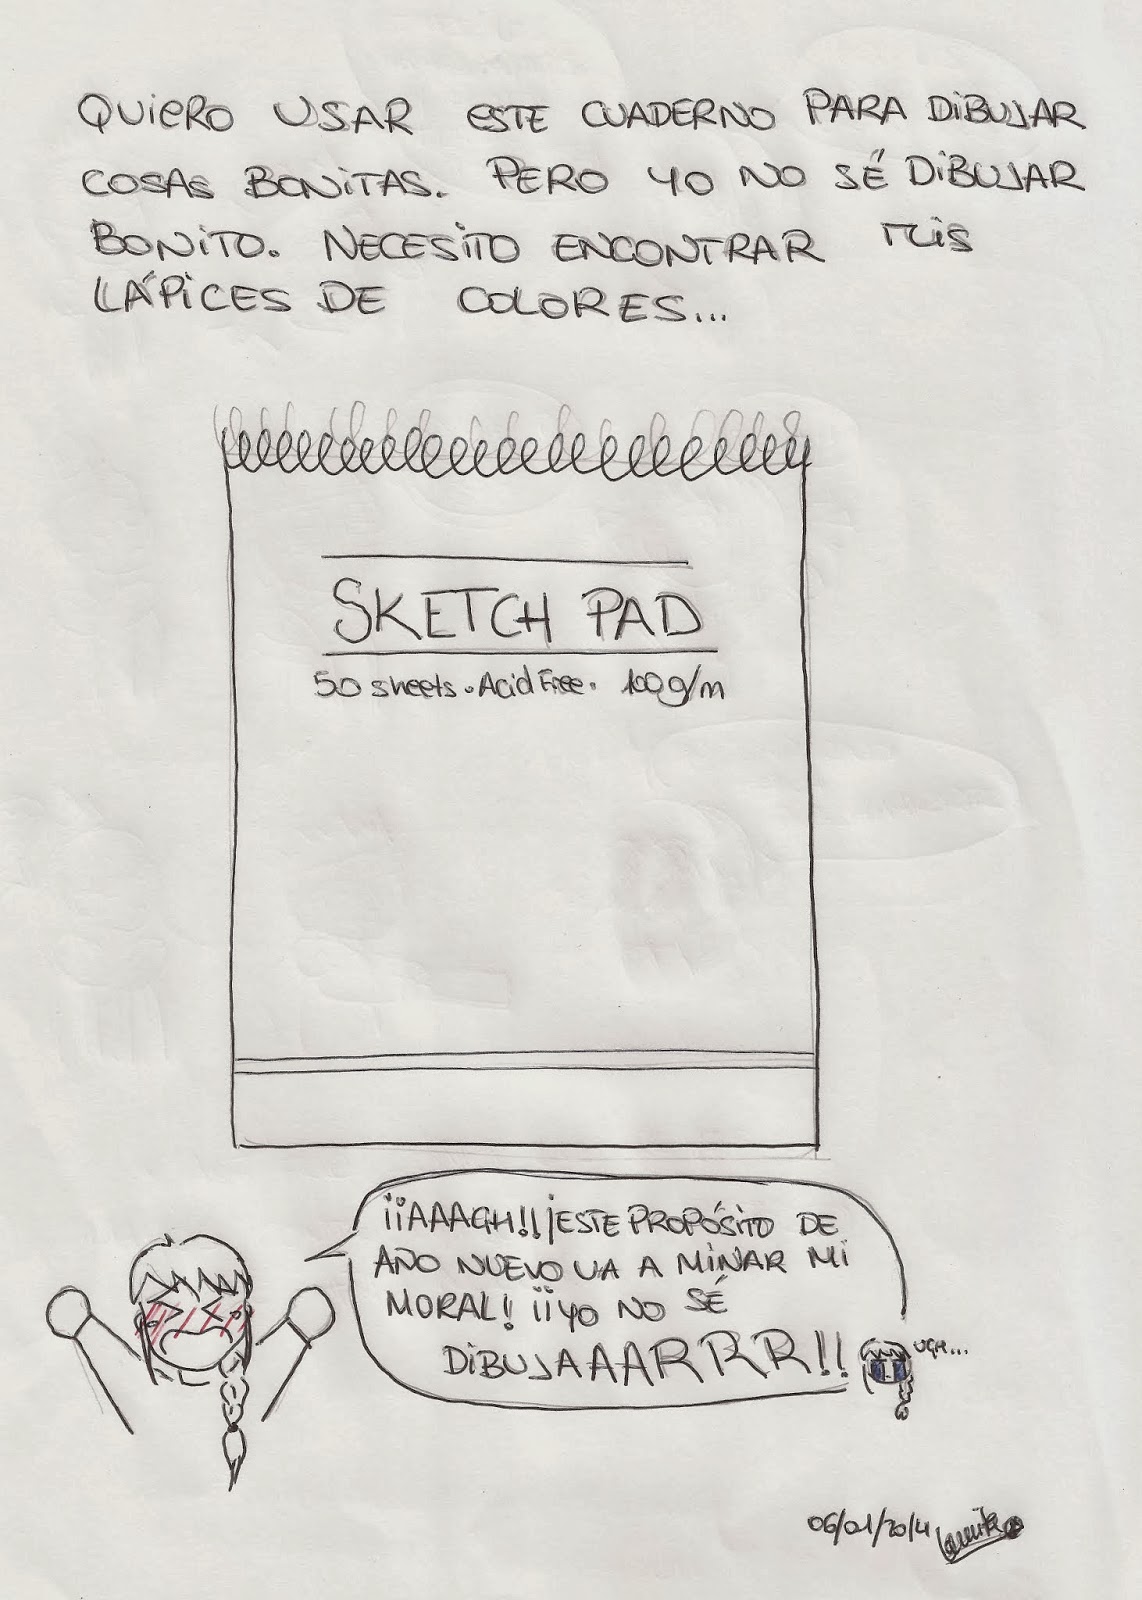 QUIERO USAR ESTE CUADERNO PARA DIBUJAR
COSAS BONITAS. PERO YO NO SÉ DIBUJAR
BONITO. NECESITO ENCONTRAR MIS
LÁPICES DE COLORES...
SKETCH PAD
50 sheets. Acid Free. 100g/m
¡¡AAAGH!! ¡ESTE PROPÓSITO DE
AÑO NUEVO VA A MINAR MI
MORAL! ¡¡YO NO SÉ
DIBUJAAAARRR!!
UGH...
06/01/2014